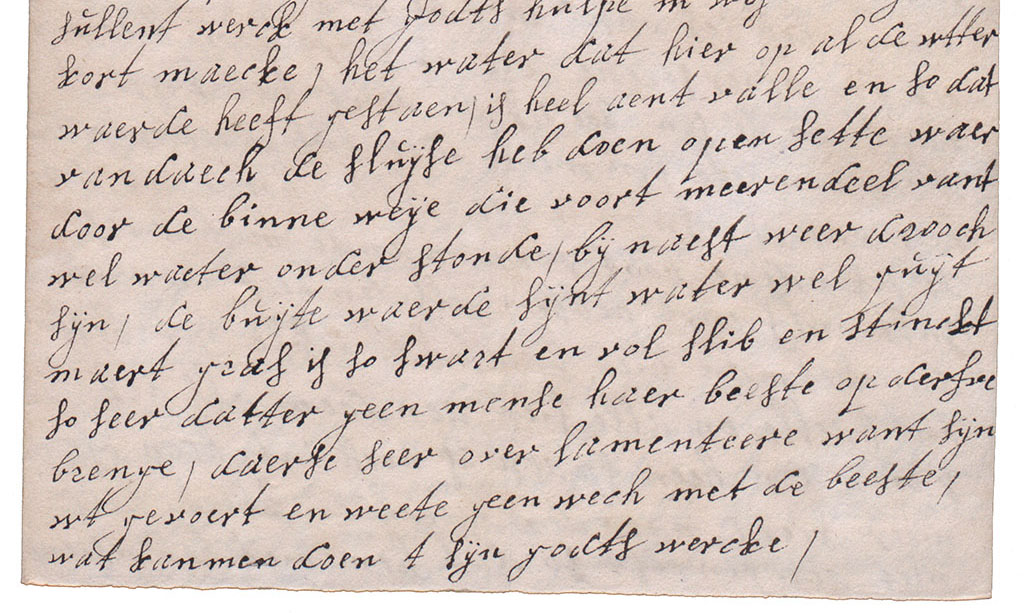 sullent werck met godts hulpe in
kort maecke / het water dat hier op al de wtter
waerde heeft gestaen / is heel aent valle en so dat
vandaech de sluÿse heb doen open sette waer
door de binne weÿe die voort meerendeel vant
wel waeter onder stonde / bÿ naest weer drooch
sÿn / de buÿte waerde sÿnt water wel quÿt
maert gras is so swart en vol slib en stinckt
so seer datter geen mense haer beeste op
brenge / daerse seer over lamenteere want sÿn
wt gevoert en weete geen wech met de beeste /
wat kanmen doen t sÿn godts wercke /